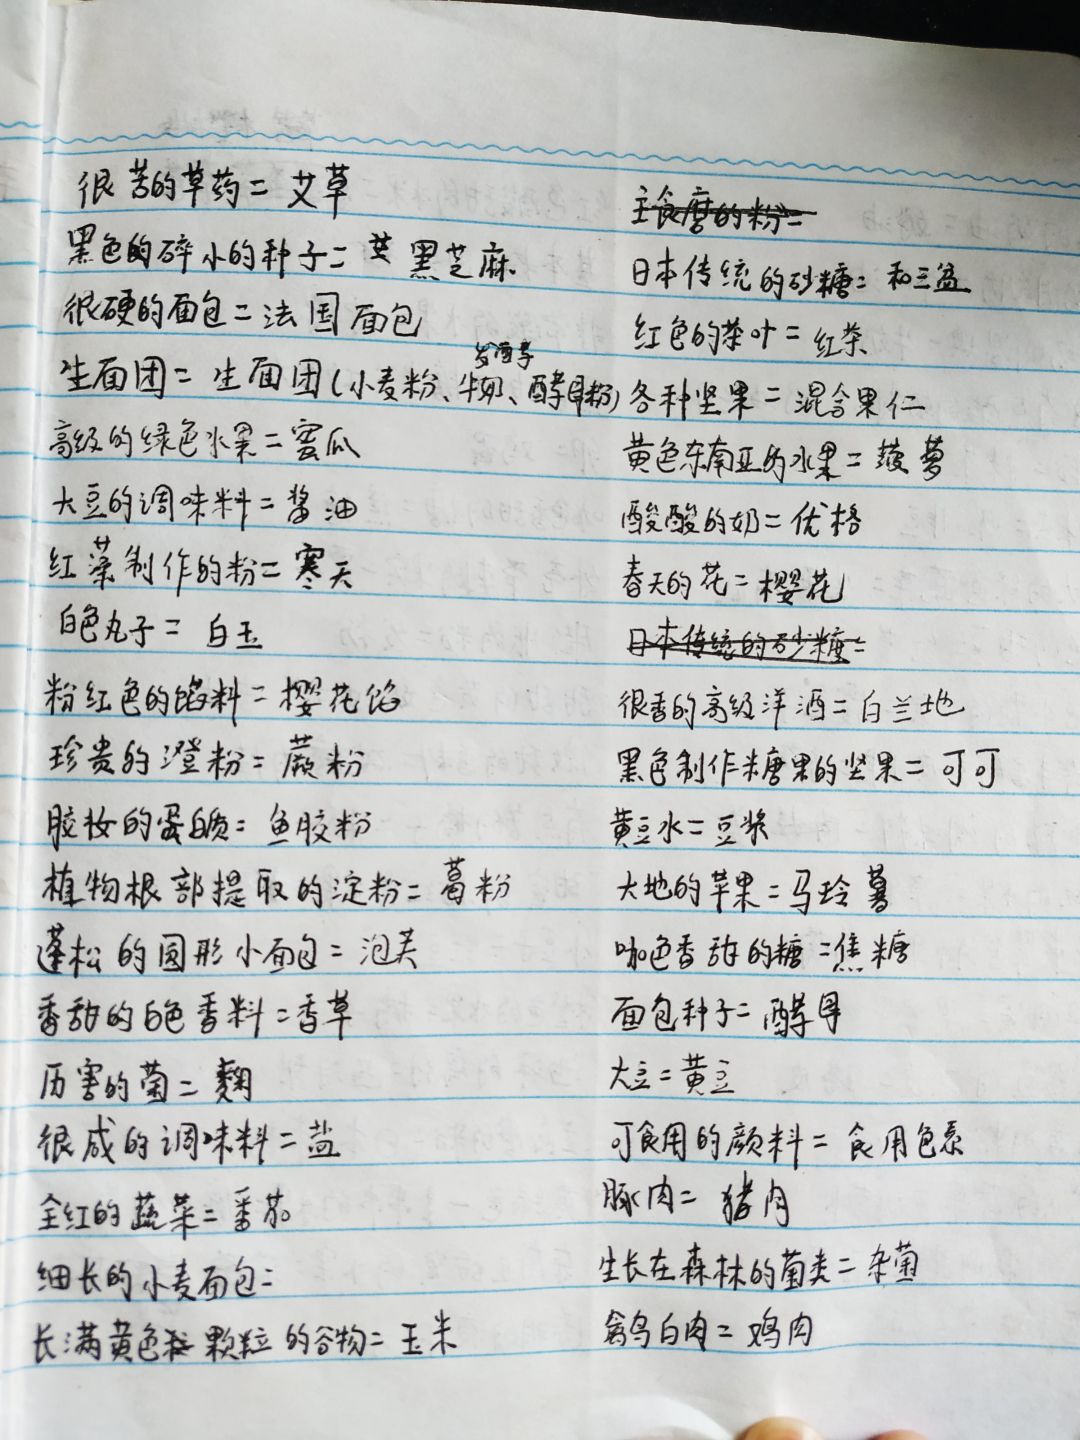 很苦的草药=艾草
黑色的碎小的种子=黑芝麻
很硬的面包=法国面包
生面团=生面团(小麦粉、牛奶、酵母粉)
高级的绿色水果=蜜瓜
大豆的调味料=酱油
红菜制作的粉=寒天
白色丸子=白玉
粉红色的馅料=樱花馅
珍贵的澄粉=蕨粉
胶妆的蛋白质=鱼胶粉
植物根部提取的淀粉=葛粉
蓬松的圆形小面包=泡芙
香甜的白色香料=香草
历害的菌=麴
很成的调味料=盐
全红的蔬菜=番茄
细长的小麦面包=
长满黄色颗粒的谷物=玉米
主食磨的粉=
日本传统的砂糖=和三盆
红色的茶叶=红茶
各种坚果=混合果仁
黄色东南亚的水果=菠萝
酸酸的奶=优格
春天的花=樱花
日本传统的砂糖=
很香的高级洋酒=白兰地
黑色制作糖果的坚果=可可
黄豆水=豆浆
大地的苹果=马玲薯
咖色香甜的糖=焦糖
面包种子=酵母
大豆=黄豆
可食用的颜料=食用色素
豚肉=猪肉
生长在森林的菌类=杂菌
禽鸟白肉=鸡肉